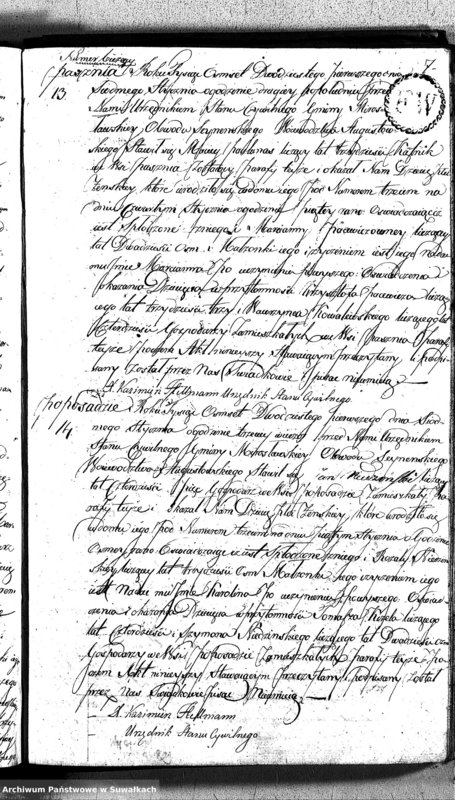 Numer bieżący 7.
Spasznia Roku Tysiąc Osmset Dwudziestego pierwszego dnia
13 Siódmego Stycznia o godzinie drugiey popołudniu przed
Nami Urzędnikiem Stanu Cywilnego Gminy Miros
ławskiey Obwodu Seynenskiego Woiewództwa Augustow
skiego Stawił się liczący lat trzydzieści Rolnik
we Wsi Spasznia Zostający Parafij teyże i okazał Nam Dziecię płci
Zenskiey które urodziło się w domu iego pod Numerem trzecim na
dniu Czwartym Stycznia o godzinie piątey rano Oswiadczaiąc iż
iest Spłodzone z niego i Maryanny liczącey
lat Dwadzieścia Osm i Małzonki iego i życzeniem iest iego nadać
mu Jmie Marcianna Po uczynieniu powyższego Oswiadczenia
i Okazania Dziecięcia w przytomności Krzysztofa licząc
ego lat trzydzieści trzy i Wawrzyna Kowalewskiego liczącego lat
Czterdzieści Gospodarzy Zamieszkałych we Wsi Spasznia Parafij
teyże poczem Akt ninieyszy Stawaiącym przeczytany i podpi
sany został przez Nas Swiadkowie pisać nieumieią
X. Kazimierz Hellmann Urzędnik Stanu Cywilnego
Poposadzie Roku Tysiąc Osmset Dwudziestego pierwszego dnia Siód
14 mego Stycznia o godzinie trzeciey wieczor przed Nami Urzędnikiem
Stanu Cywilnego Gminy Mirosławskiey Obwodu Seynenskiego
Woiewództwa Augustowskiego Stawił się Jan Niedzwiedzki liczący
lat Czterdzieści Pięć Gospodarz we Wsi Poposadzie Zamieszkały Pa
rafij teyże i okazał Nam Dziecię płci Zenskiey które urodziło się
w domu iego pod Numerem trzecim na dniu piątym Stycznia o godzinie
Osmey rano Oswiadczaiąc iż iest Spłodzone z niego i Rozalij
liczącey lat trzydzieści Osm Małzonki iego i życzeniem iego
iest Nadać mu Jmie Karolina Po uczynieniu powyższego Oswiad
czenia i okazaniu Dziecięcia w przytomności Tomasza Kizela liczącego
lat Czterdzieści i Szymona Naczinskiego liczącego lat Dwadzieścia Osm
Gospodarzy we Wsi Poposadzie Zamieszkałych Parafij teyże po
czem Akt ninieyszy Stawaiącym Przeczytany i podpisany został
przez Nas Swiadkowie pisać Nieumieią
X. Kazimierz Hellmann
Urzędnik Stanu Cywilnego
Archiwum Państwowe w Suwałkach